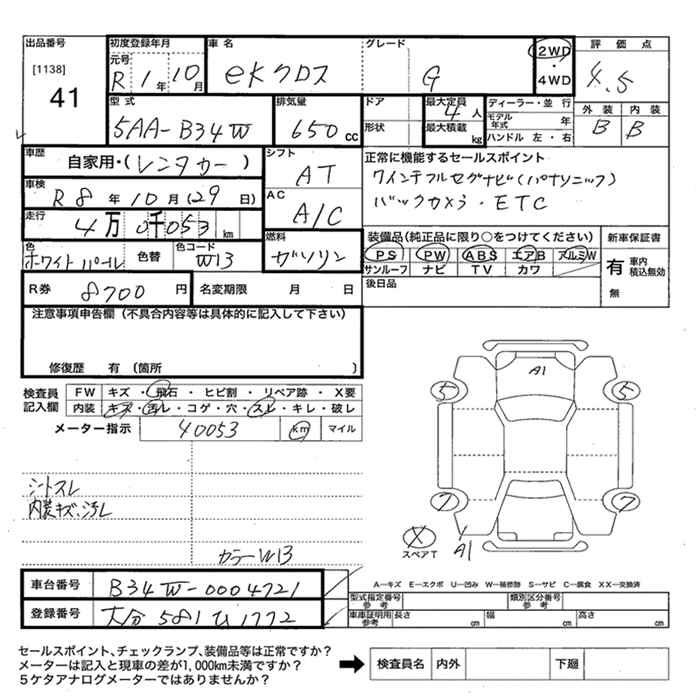 出品番号 [1138] 41
初度登録年月 元号 R 1年 10月
車名 eKクロス
グレード G
2WD・4WD
評価点 4.5
型式 5AA-B34W
排気量 650cc
ドア 形状
最大定員 4人
最大積載 kg
ディーラー・並行
モデル年式 年
ハンドル 左・右
外装 B 内装 B
車歴 自家用・(レンタカー)
シフト AT
車検 R8年10月(29日)
AC A/C
走行 4万0千053km
色 ホワイトパール 色替 色コード W13
燃料 ガソリン
正常に機能するセールスポイント
7インチフルセグナビ(パナソニック)
バックカメラ・ETC
装備品(純正品に限り○をつけてください)
PS PW ABS エアB アルミW
サンルーフ ナビ TV カワ
後日品
新車保証書
有 車内積込無効
無
R券 8700円 名変期限 月 日
注意事項申告欄(不具合内容等は具体的に記入して下さい)
修復歴 有(箇所 )
検査員記入欄
FW キズ・飛石・ヒビ割・リペア跡・X要
内装 キズ・汚レ・コゲ・穴・スレ・キレ・破レ
メーター指示 40053 km マイル
シートスレ
内装キズ・汚レ
カラーW13
A1
5 5
7 7
X スペアT A1
A―キズ E―エクボ U―凹み W―補修跡 S―サビ C―腐食 XX―交換済
車台番号 B34W-0004721
登録番号 大分 581 ひ1772
型式指定番号 参考 類別区分番号 参考
車庫証明用 参考 長さ cm 幅 cm 高さ cm
セールスポイント、チェックランプ、装備品等は正常ですか?
メーターは記入と現車の差が1,000km未満ですか?
5ケタアナログメーターではありませんか?
検査員名 内外 下廻